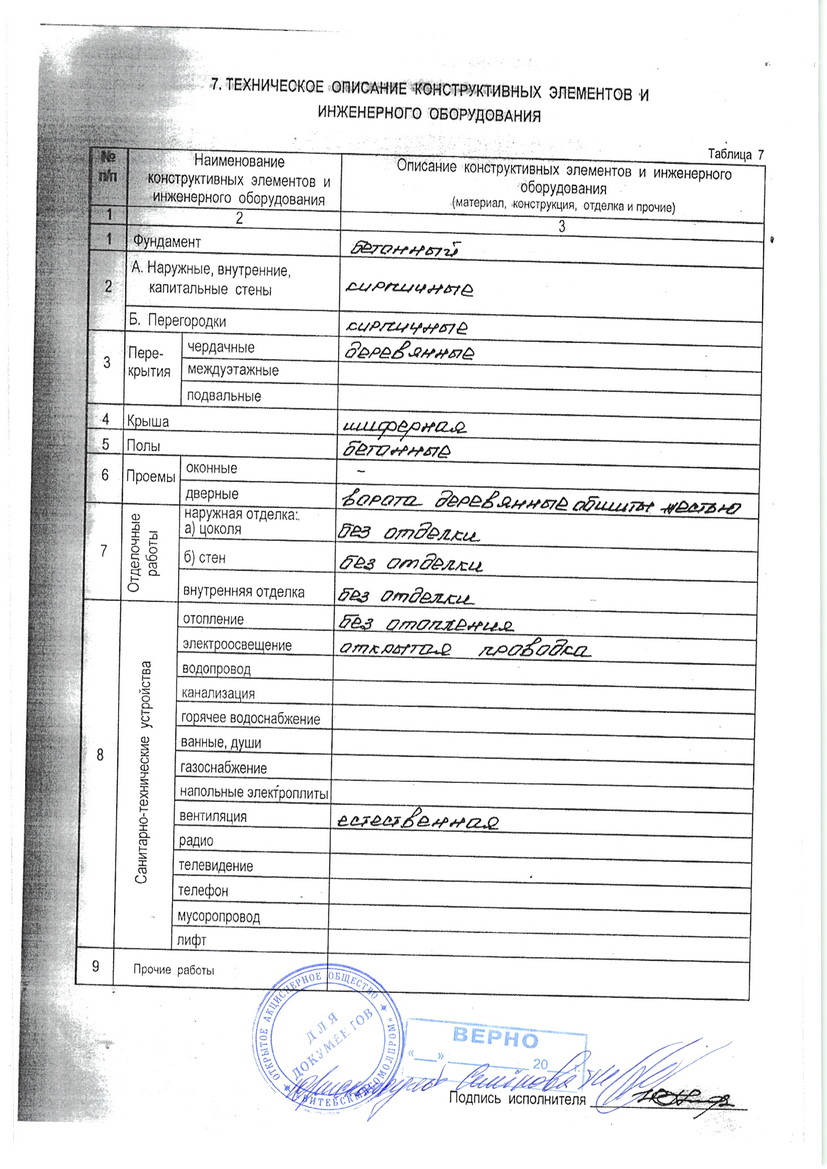 7. ТЕХНИЧЕСКОЕ ОПИСАНИЕ КОНСТРУКТИВНЫХ ЭЛЕМЕНТОВ И
ИНЖЕНЕРНОГО ОБОРУДОВАНИЯ
Таблица 7
№ п/п
Наименование
конструктивных элементов и
инженерного оборудования
Описание конструктивных элементов и инженерного
оборудования
(материал, конструкция, отделка и прочие)
1 2 3
1 Фундамент бетонный
2 А. Наружные, внутренние,
капитальные стены кирпичные
Б. Перегородки кирпичные
3 Пере-
крытия
чердачные деревянные
междуэтажные
подвальные
4 Крыша шиферная
5 Полы бетонные
6 Проемы оконные –
дверные ворота деревянные обшиты жестью
7 Отделочные
работы
наружная отделка:
а) цоколя без отделки
б) стен без отделки
внутренняя отделка без отделки
8 Санитарно-технические устройства
отопление без отопления
электроосвещение открытая проводка
водопровод
канализация
горячее водоснабжение
ванные, души
газоснабжение
напольные электроплиты
вентиляция естественная
радио
телевидение
телефон
мусоропровод
лифт
9 Прочие работы
ОТКРЫТОЕ АКЦИОНЕРНОЕ ОБЩЕСТВО
ДЛЯ
ДОКУМЕНТОВ
ВЕРНО
«__» ________ 20 г.
Подпись исполнителя